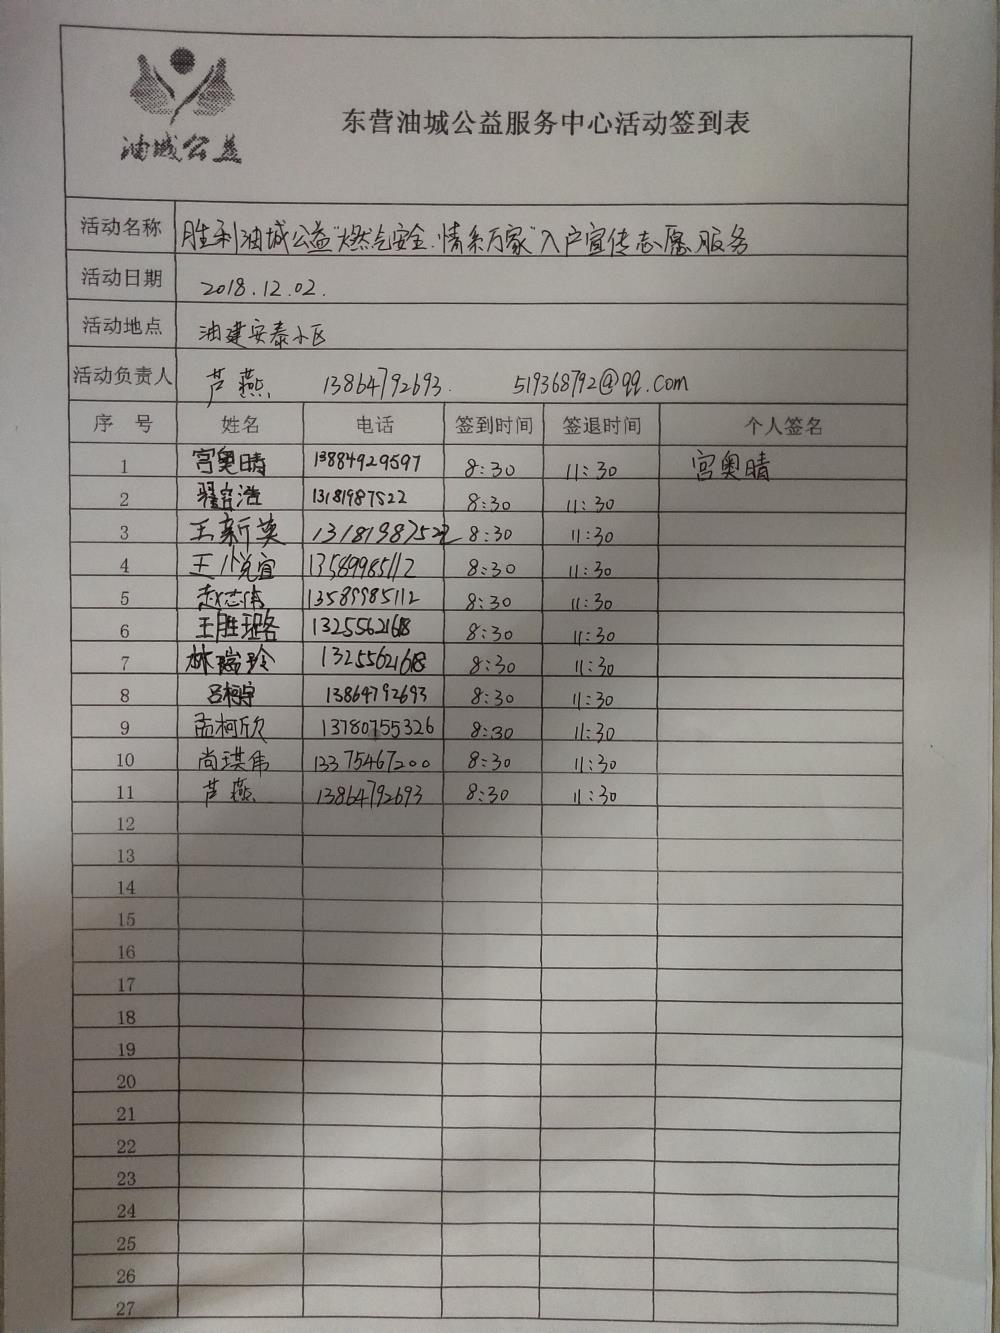 油城公益
东营油城公益服务中心活动签到表
活动名称 胜利油城公益"燃气安全.情系万家"入户宣传志愿服务
活动日期 2018.12.02.
活动地点 油建安泰小区
活动负责人 芦燕 13864792693. 519368792@qq.com
序 号 姓名 电话 签到时间 签退时间 个人签名
1 宫奥晴 13884929597 8:30 11:30 宫奥晴
2 13181987522 8:30 11:30
3 王新英 13181987522 8:30 11:30
4 王悦宜 13589985112 8:30 11:30
5 赵志伟 13589985112 8:30 11:30
6 王胜珺 13255621618 8:30 11:30
7 林瑞玲 13255621618 8:30 11:30
8 吕柯宇 13864792693 8:30 11:30
9 柯欣 13780755326 8:30 11:30
10 尚琪伟 13375467200 8:30 11:30
11 芦燕 13864792693 8:30 11:30
12
13
14
15
16
17
18
19
20
21
22
23
24
25
26
27